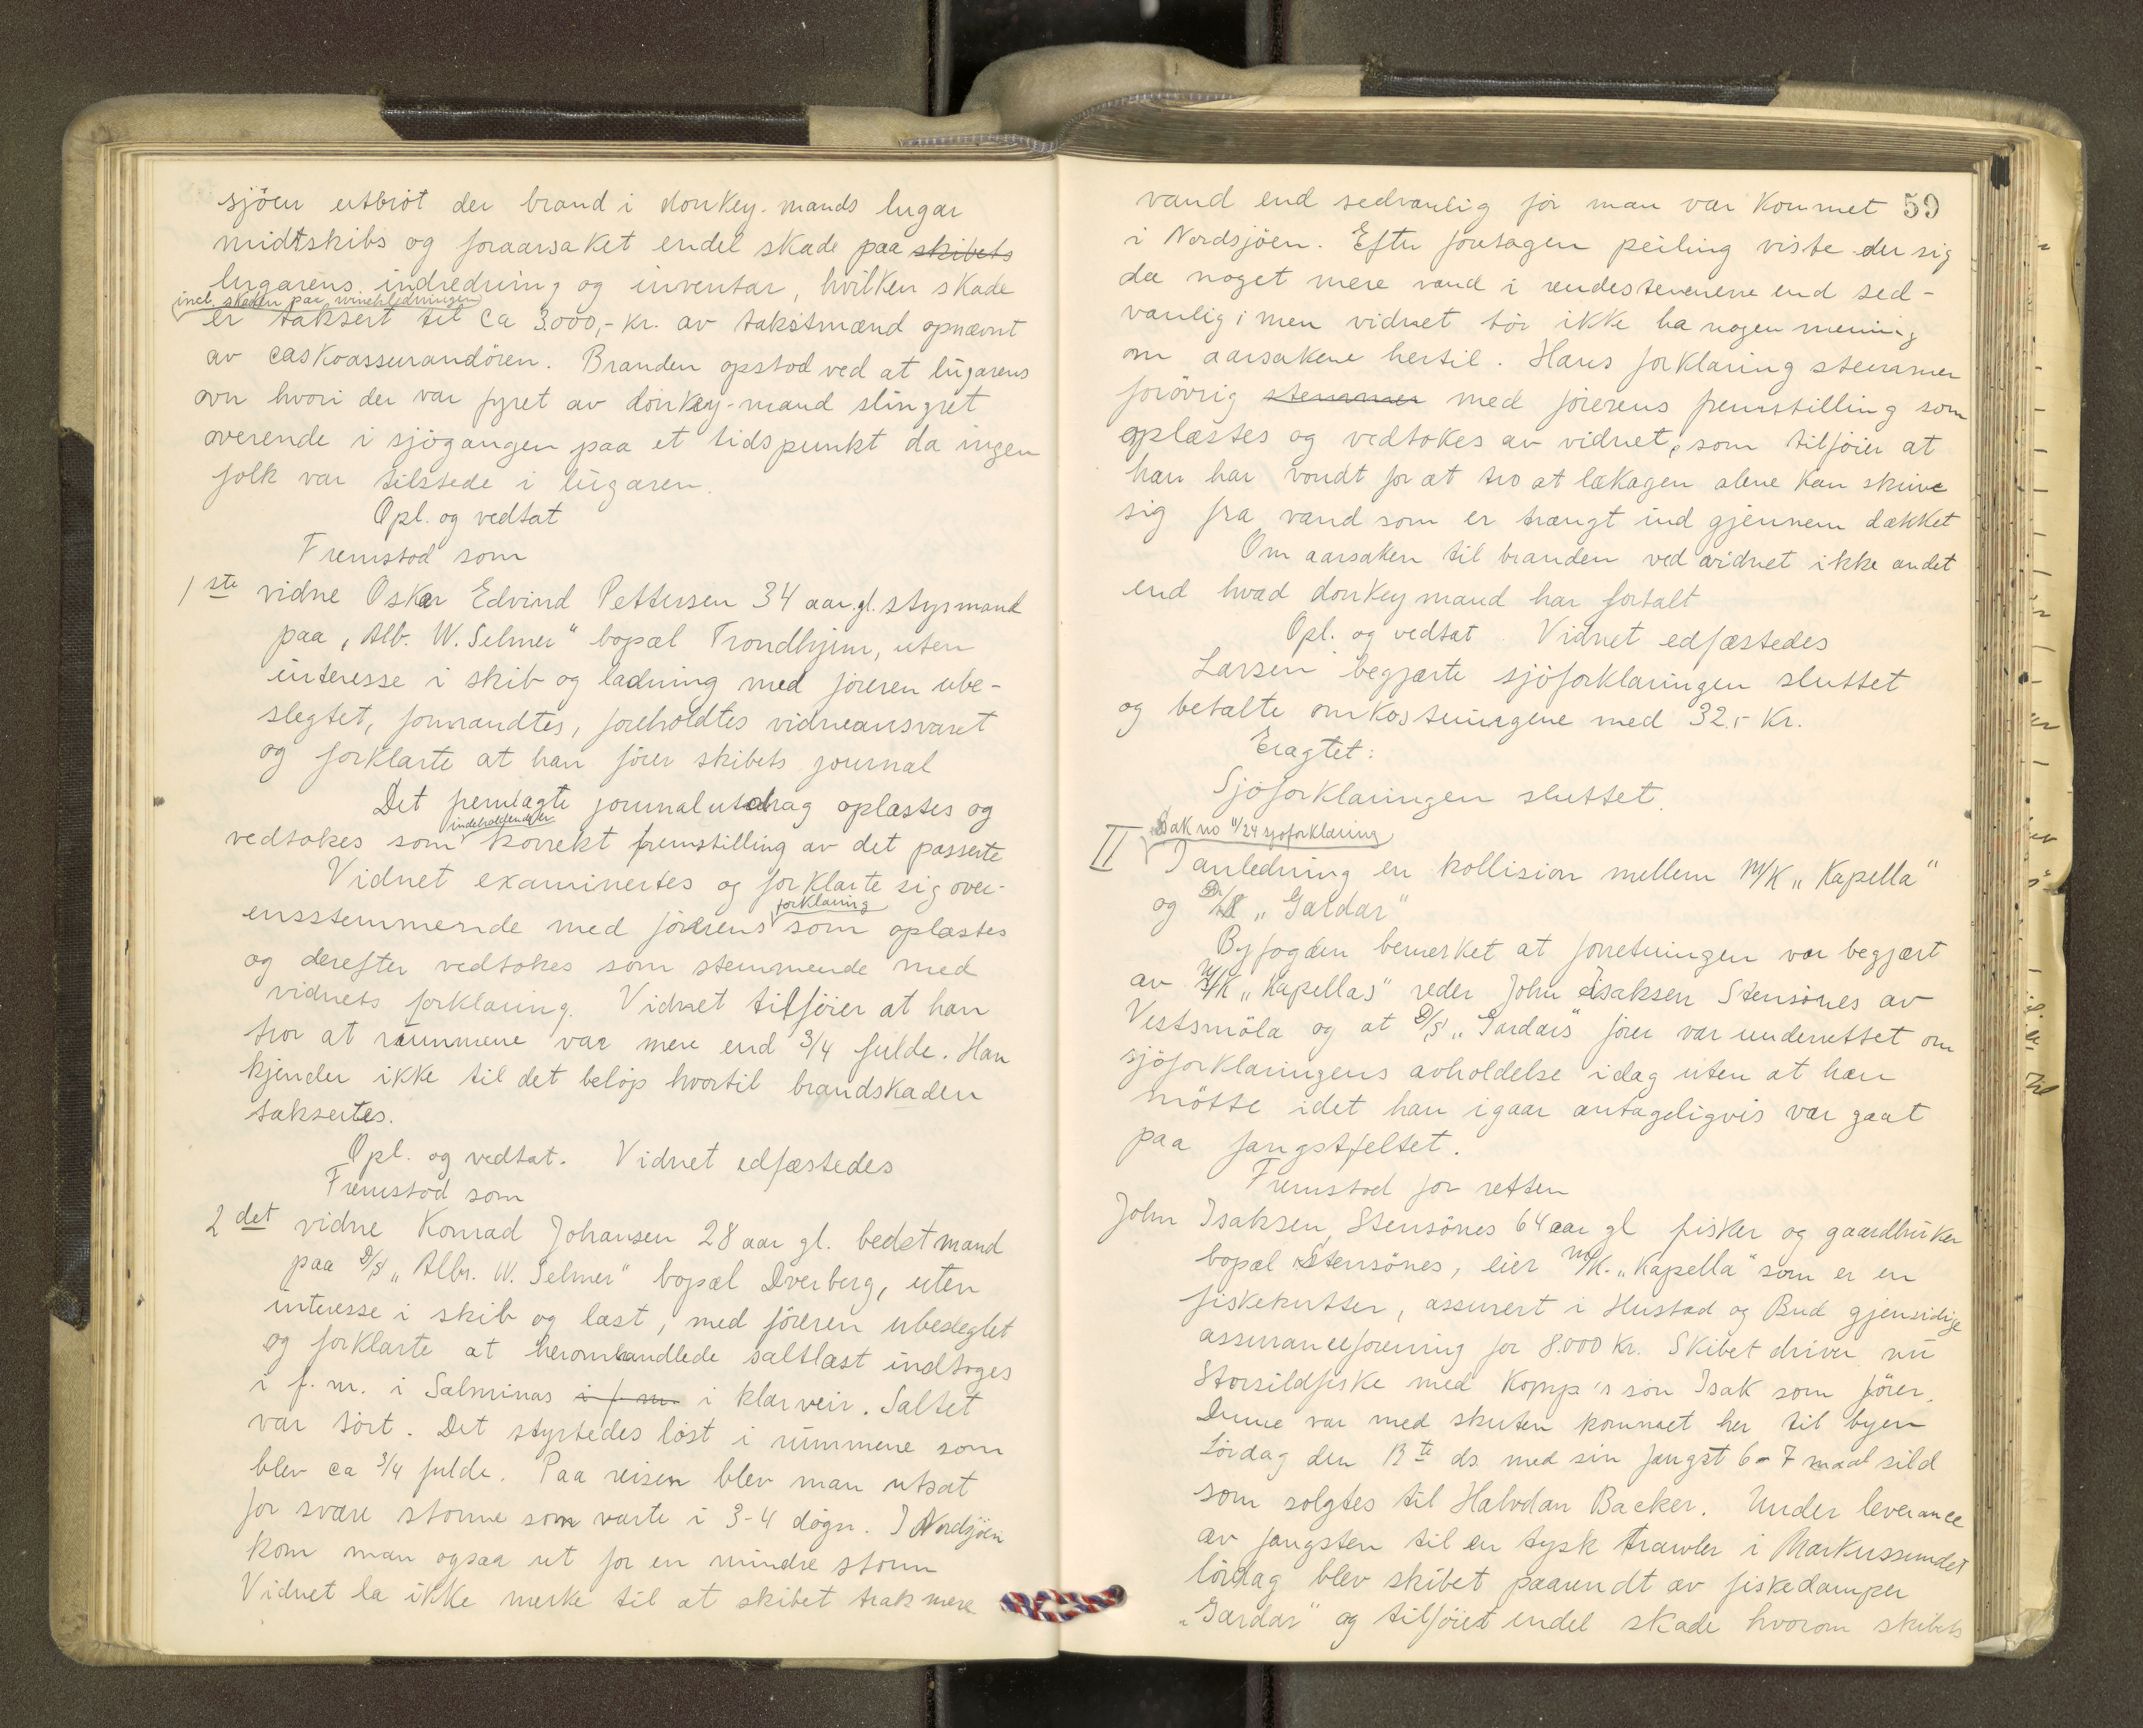 sjöen utbröt der brand i donkey-mands lugar
midtskibs og foraarsaket endel skade paa skibets
lugarens indredning og inventar, hvilken skade
incl. skaden paa winchledningen
er taksert til ca 3.000,- kr. av takstmænd opnævnt
av caskoassurandören. Branden opstod ved at lugarens
ovn hvori der var fyret av donkey-mand slingret
overende i sjögangen paa et tidspunkt da ingen
folk var tilstede i lugaren.
Opl. og vedtat
Fremstod som
1ste vidne Oskar Edvind Pettersen 34 aar gl. styrmand
paa „Alb. W. Selmer" bopæl Trondhjem, uten
interesse i skib og ladning med föreren ube-
slegtet, formandtes, foreholdtes vidneansvaret
og forklarte at han förer skibets journal
Det fremlagte journalutdrag oplæstes og
indeholdende en
vedtokes som korrekt fremstilling av det passerte
Vidnet examinertes og forklarte sig over-
forklaring
ensstemmende med förerens som oplæstes
og derefter vedtokes som stemmende med
vidnets forklaring. Vidnet tilföier at han
tror at rummene var mere end 3/4 fulde. Han
kjender ikke til det belöp hvortil brandskaden
taksertes.
Opl. og vedtat. Vidnet edfæstedes
Fremstod som
2det vidne Konrad Johansen 28 aar gl. bedstmand
paa D/S „Albr. W. Selmer" bopæl Dverberg, uten
interesse i skib og last, med föreren ubeslegtet
og forklarte at heromhandlede saltlast indtoges
i f. m. i Salminas i f m. i klarveir. Saltet
var tört. Det styrtedes löst i rummene som
blev ca 3/4 fulde. Paa reisen blev man utsat
for svære storme som varte i 3-4 dögn. I Nordsjöen
kom man ogsaa ut for en mindre storm
Vidnet la ikke merke til at skibet trak mere
59
vand end sedvanlig för man var kommet
i Nordsjöen. Efter foretagen peiling viste der sig
da noget mere vand i rendestenene end sed-
vanlig; men vidnet tör ikke ha nogen mening
om aarsakene hertil. Hans forklaring stemmer
forövrig stemmer med förerens fremstilling som
oplæstes og vedtokes av vidnet, som tilföier at
han har vondt for at tro at lækagen alene kan skrive
sig fra vand som er trængt ind gjennem dækket
Om aarsaken til branden ved vidnet ikke andet
end hvad donkeymand har fortalt
Opl. og vedtat. Vidnet edfæstedes
Larsen begjærte sjöforklaringen sluttet
og betalte omkostningene med 32,- Kr.
Eragtet:
Sjöforklaringen sluttet.
Sak no 11/24 sjöforklaring
II I anledning en kollision mellem M/K „Kapella"
og D/S „Gardar"
Byfogden bemerket at forretningen var begjært
av M/K „Kapellas" reder John Isaksen Stensönes av
Vestsmöla og at D/S „Gardars" förer var underrettet om
sjöforklaringens avholdelse idag uten at han
mötte idet han igaar antageligvis var gaat
paa fangstfeltet.
Fremstod for retten
John Isaksen Stensönes 64 aar gl fisker og gaardbruker
bopæl Stensönes, eier M/K. „Kapella" som er en
fiskekutter, assurert i Hustad og Bud gjensidige
assuranceforening for 8.000 Kr. Skibet driver nu
Storsildfiske med Komp's sön Isak som förer.
Denne var med skuten kommet her til byen
Lördag den 13te ds med sin fangst 6-7 maal sild
som solgtes til Halvdan Backer. Under leverance
av fangsten til en tysk trawler i Markussundet
lördag blev skibet paarendt av fiskedamper
„Gardar" og tilföiet endel skade hvorom skibets